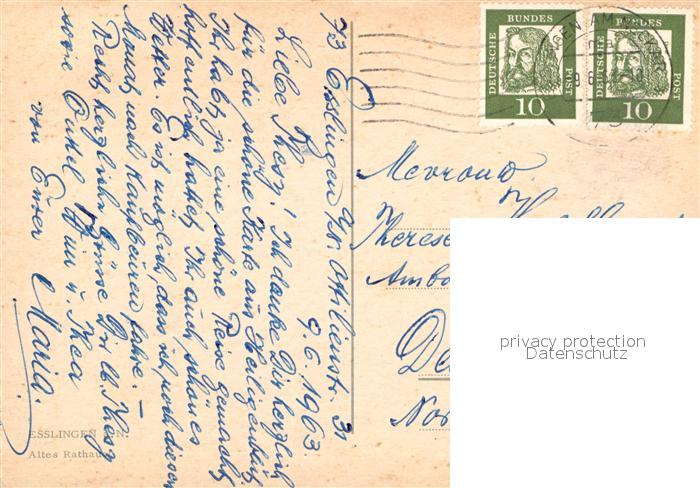 73 Esslingen a/N. Ottilienstr. 31
9.6.1963.
Liebe Thesy! Ich danke Dir herzlich
für die schöne Karte aus Heiligenblut.
Ihr habt ja eine schöne Reise gemacht,
hoffentlich hattet Ihr auch schönes
Wetter. Es ist möglich, dass ich noch diesen
Monat nach Kaufbeuren fahre. –
Recht herzliche Grüsse Dir lb. Thesy
sowie Onkel Wim u. Thea
von Eurer Maria.
ESSLINGEN A. N.
Altes Rathaus
DEUTSCHE BUNDES POST
10
DEUTSCHE BUNDES POST
10
Mevrouw
Therese
Amb
De
Noo
privacy protection
Datenschutz